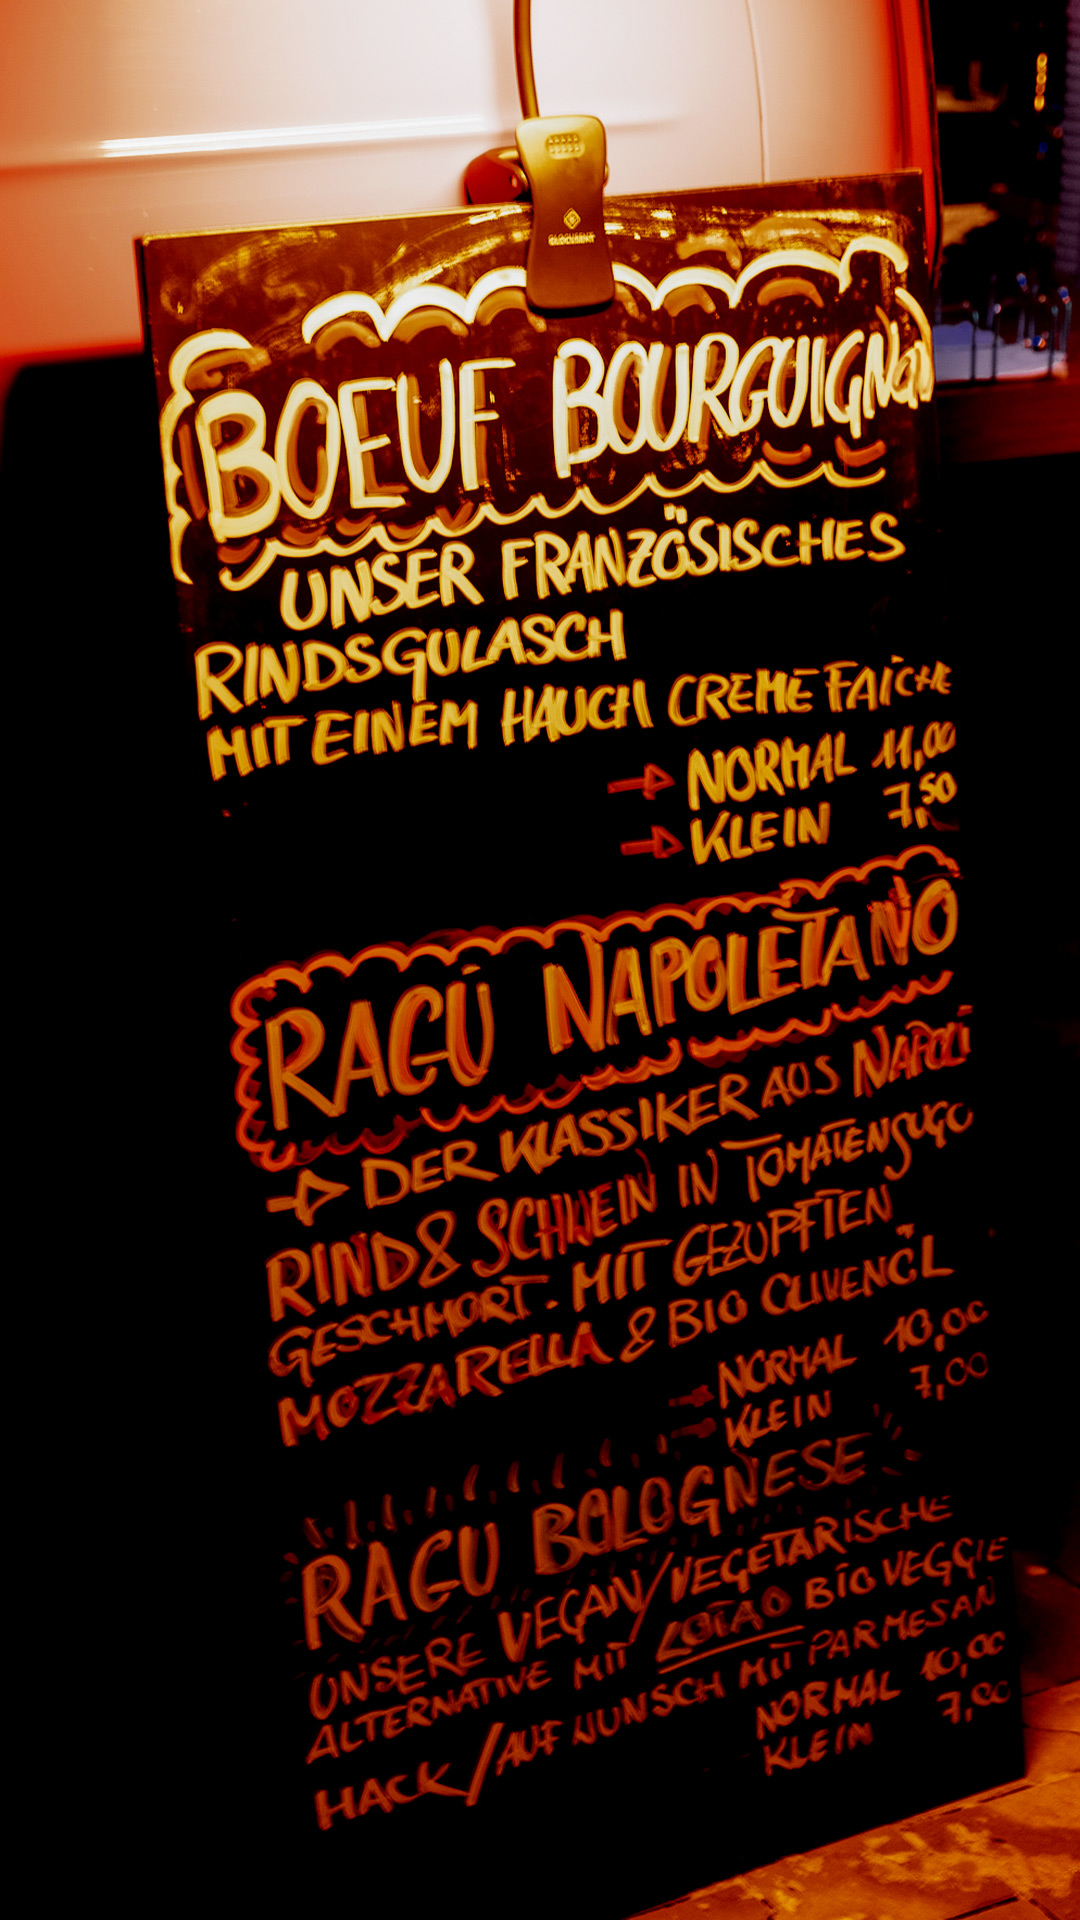 GLOCUSENT
BOEUF BOURGUIGNON
UNSER FRANZÖSISCHES
RINDSGULASCH
MIT EINEM HAUCH CREME FAICHE
NORMAL 11,00
KLEIN 7,50
RAGÚ NAPOLETANO
DER KLASSIKER AUS NAPOLI
RIND & SCHWEIN IN TOMATENSUGO
GESCHMORT. MIT GEZUPFTEN
MOZZARELLA & BIO OLIVENÖL
NORMAL 10,00
KLEIN 7,00
RAGU BOLOGNESE
UNSERE VEGAN/VEGETARISCHE
ALTERNATIVE MIT LOTAO BIO VEGGIE
HACK/AUF WUNSCH MIT PARMESAN
NORMAL 10,00
KLEIN 7,00